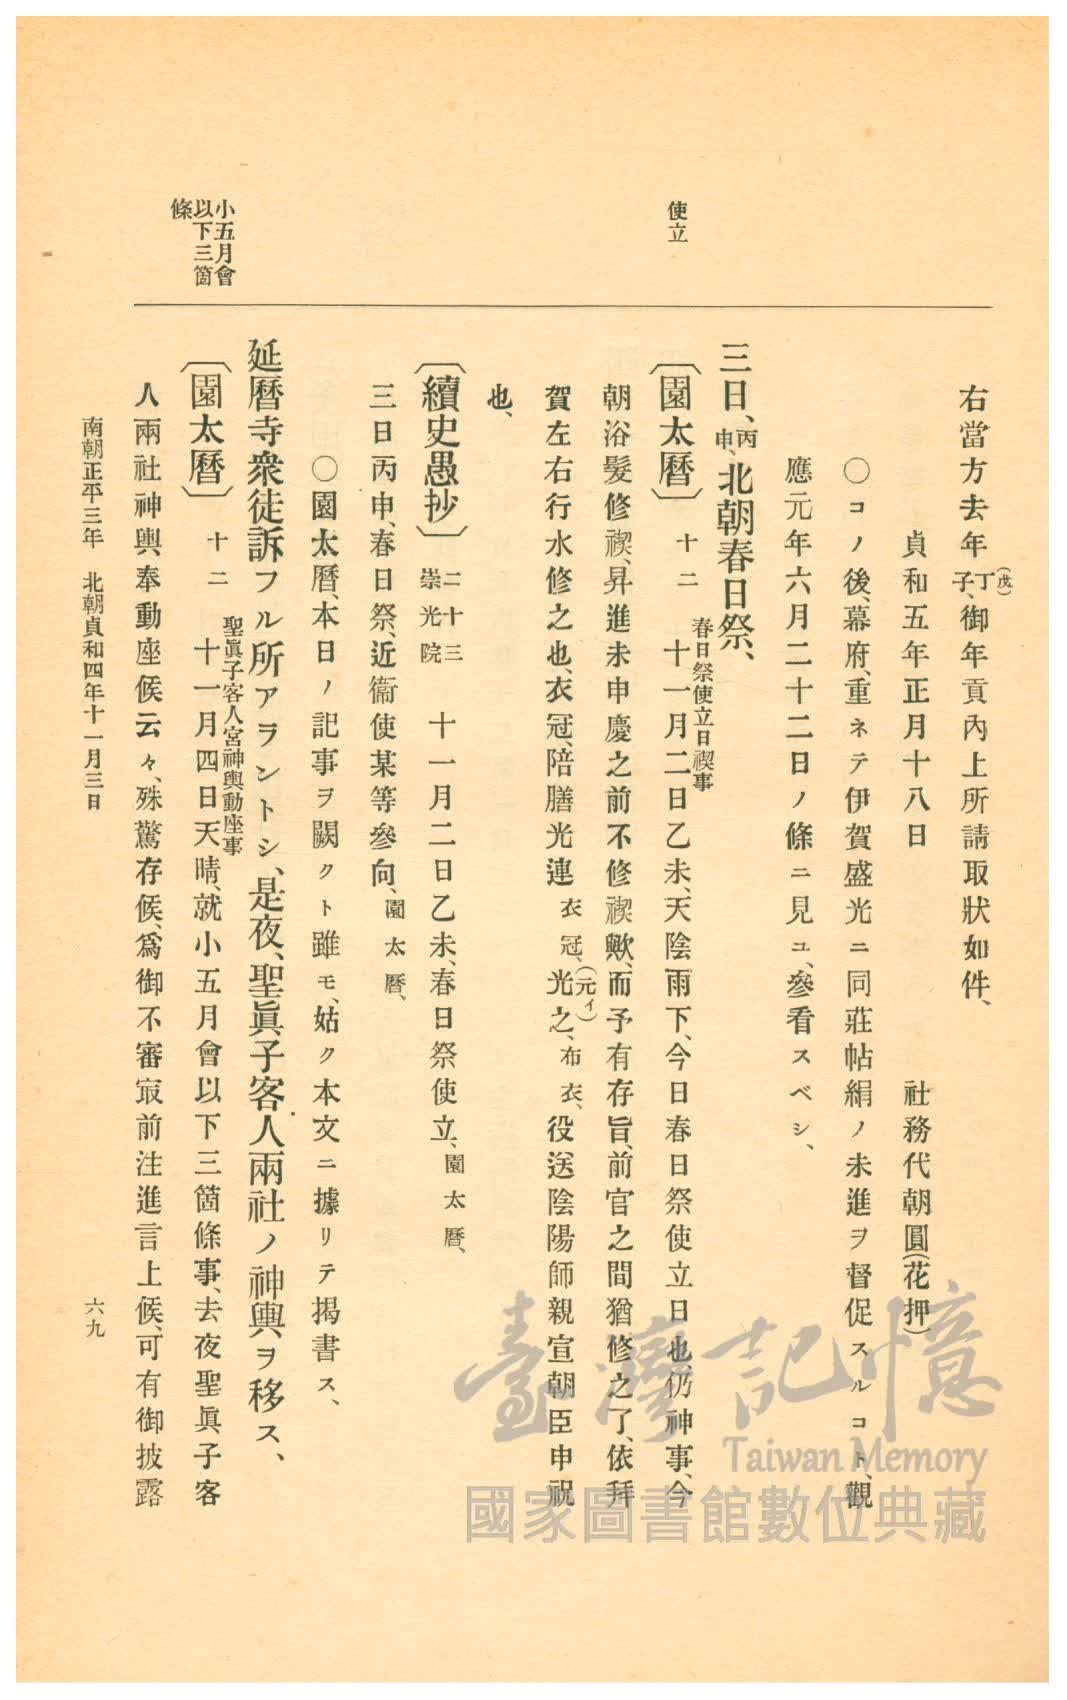 使立
小五月會
以下三箇
條
右當方去年丁(戊)子、御年貢內上所請取狀如件、
貞和五年正月十八日　社務代朝圓(花押)
〇コノ後、幕府、重ネテ伊賀盛光ニ同莊帖絹ノ未進ヲ督促スルコト、觀
應元年六月二十二日ノ條ニ見ユ、參看スベシ、
三日、丙申、北朝春日祭、
〔園太曆〕十二　春日祭使立日禊事　十一月二日乙未、天陰雨下、今日春日祭使立日也、仍神事、今
朝浴髮修禊、昇進未申慶之前不修禊歟、而予有存旨、前官之間猶修之了、依拜
賀左右行水修之也、衣冠、陪膳光連衣冠、光(元イ)之、布衣、役送陰陽師親宣朝臣申祝
也、
〔續史愚抄〕二十三崇光院　十一月二日乙未、春日祭使立、園太曆、
三日丙申、春日祭、近衞使某等參向、園太曆、
〇園太曆、本日ノ記事ヲ闕クト雖モ、姑ク本文ニ據リテ揭書ス、
延曆寺衆徒訴フル所アラントシ、是夜、聖眞子客人兩社ノ神輿ヲ移ス、
〔園太曆〕十二　聖眞子客人宮神輿動座事　十一月四日天晴、就小五月會以下三箇條事、去夜聖眞子客
人兩社神輿奉動座候云々、殊驚存候、爲御不審㝡前注進言上候、可有御披露
南朝正平三年　北朝貞和四年十一月三日
六九
臺灣記憶
Taiwan Memory
國家圖書館數位典藏